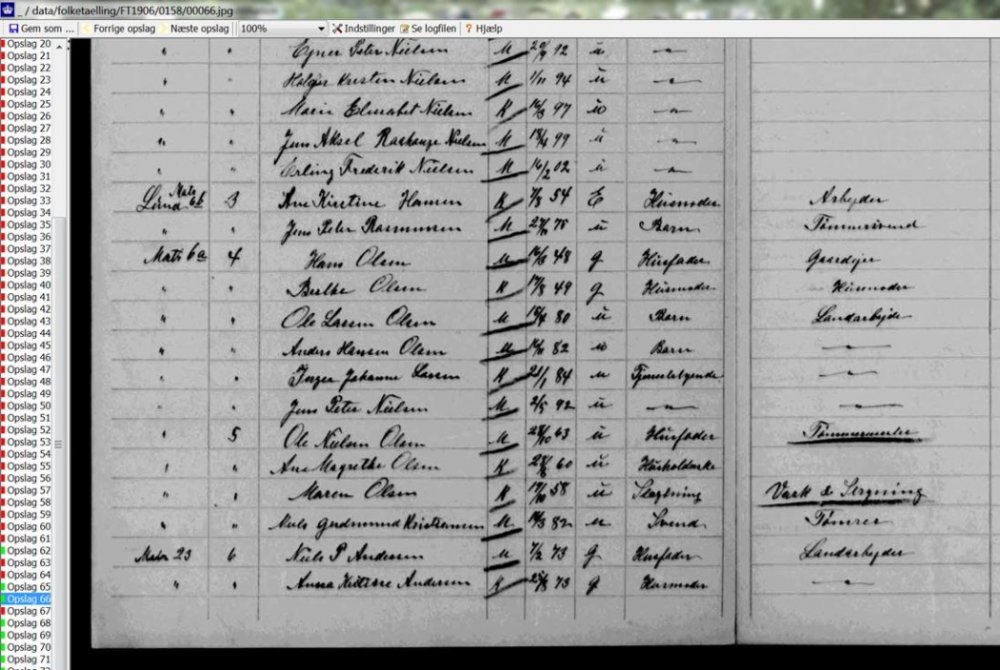 _ / data/folketaelling/FT1906/0158/00066.jpg
Gem som ... Forrige opslag Næste opslag 100% Indstillinger Se logfilen ? Hjælp
Opslag 20
Opslag 21
Opslag 22
Opslag 23
Opslag 24
Opslag 25
Opslag 26
Opslag 27
Opslag 28
Opslag 29
Opslag 30
Opslag 31
Opslag 32
Opslag 33
Opslag 34
Opslag 35
Opslag 36
Opslag 37
Opslag 38
Opslag 39
Opslag 40
Opslag 41
Opslag 42
Opslag 43
Opslag 44
Opslag 45
Opslag 46
Opslag 47
Opslag 48
Opslag 49
Opslag 50
Opslag 51
Opslag 52
Opslag 53
Opslag 54
Opslag 55
Opslag 56
Opslag 57
Opslag 58
Opslag 59
Opslag 60
Opslag 61
Opslag 62
Opslag 63
Opslag 64
Opslag 65
Opslag 66
Opslag 67
Opslag 68
Opslag 69
Opslag 70
Opslag 71
" " Ejner Peter Nielsen M 92 u — " —
" " Holger Kresten Nielsen M 1/11 94 u — " —
" " Marie Elisabet Nielsen K 97 u — " —
" " Jens Aksel Nielsen M 99 u — " —
" " Erling Frederik Nielsen M 16/2 02 u — " —
Lund Matr 6b 3 Ane Kirstine Hansen K 54 E Husmoder Arbejder
" " Jens Peter Rasmussen M 75 u Barn Tømmersvend
Matr 6a 4 Hans Olsen M 48 g Husfader Gaardejer
" " Olsen K 49 g Husmoder Husmoder
" " Ole Larsen Olsen M 80 u Barn Landarbejder
" " Anders Hansen Olsen M 82 u Barn — " —
" " Inger Johanne Larsen K 21/1 84 u Tjenestetyende — " —
" " Jens Peter Nielsen M 2/5 92 u — " — — " —
" 5 Ole Nielsen Olsen M 63 u Husfader Tømmermester
" " Ane Magrethe Olsen K 60 u
" " Maren Olsen K 58 u Slægtning Vask & Strygning
" " Niels Gudmund Kristiansen M 82 u Svend Tømrer
Matr 23 6 Niels P Andersen M 7/2 73 g Husfader Landarbejder
" " Anna Andersen K 73 g Husmoder — " —